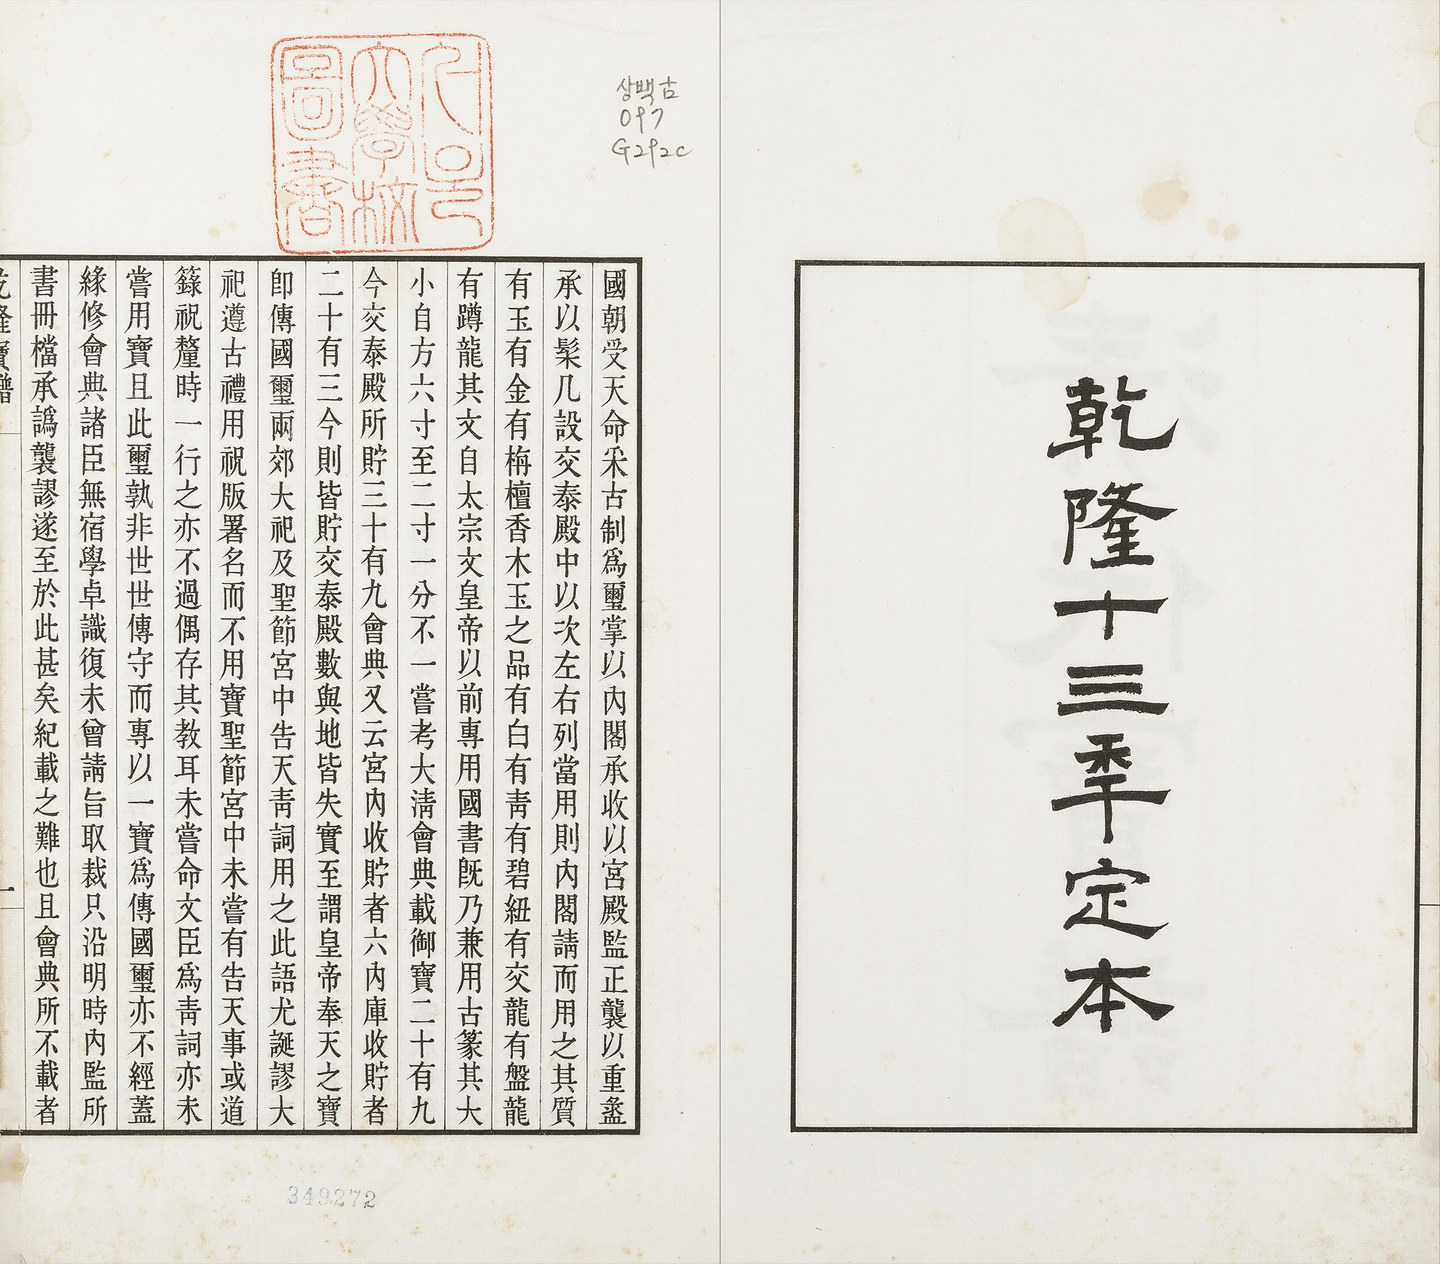 乾隆十三秊定本
상백古
097
G292c
서울
大學校
圖書
國朝受天命采古制爲璽掌以內閣承收以宮殿監正襲以重盝
承以髹几設交泰殿中以次左右列當用則內閣請而用之其質
有玉有金有栴檀香木玉之品有白有靑有碧紐有交龍有盤龍
有蹲龍其文自太宗文皇帝以前專用國書旣乃兼用古篆其大
小自方六寸至二寸一分不一嘗考大淸會典載御寶二十有九
今交泰殿所貯三十有九會典又云宮內收貯者六內庫收貯者
二十有三今則皆貯交泰殿數與地皆失實至謂皇帝奉天之寶
卽傳國璽兩郊大祀及聖節宮中告天靑詞用之此語尤誕謬大
祀遵古禮用祝版署名而不用寶聖節宮中未嘗有告天事或道
籙祝釐時一行之亦不過偶存其教耳未嘗命文臣爲靑詞亦未
嘗用寶且此璽孰非世世傳守而專以一寶爲傳國璽亦不經蓋
緣修會典諸臣無宿學卓識復未曾請旨取裁只沿明時內監所
書冊檔承譌襲謬遂至於此甚矣紀載之難也且會典所不載者
乾隆寶譜
一
349272